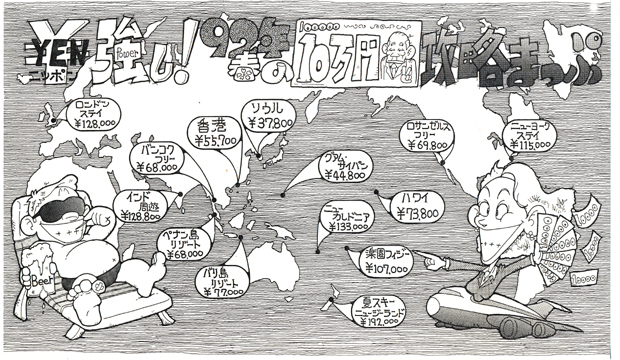 ¥
YEN
ニッポン
Power
強し!
'92年
春の
100000
10万円
攻略まっぷ
ロンドン
ステイ
¥128,000
バンコク
フリー
¥68,000
香港
¥55,700
ソウル
¥37,800
グァム・
サイパン
¥44,800
ロサンゼルス
フリー
¥69,800
ニューヨーク
ステイ
¥115,000
インド
周遊
¥128,800
ペナン島
リゾート
¥68,000
バリ島
リゾート
¥77,000
ニュー
カレドニア
¥133,000
ハワイ
¥73,800
楽園フィジー
¥107,000
夏スキー
ニュージーランド
¥192,000
Beer
10000
10000
10000